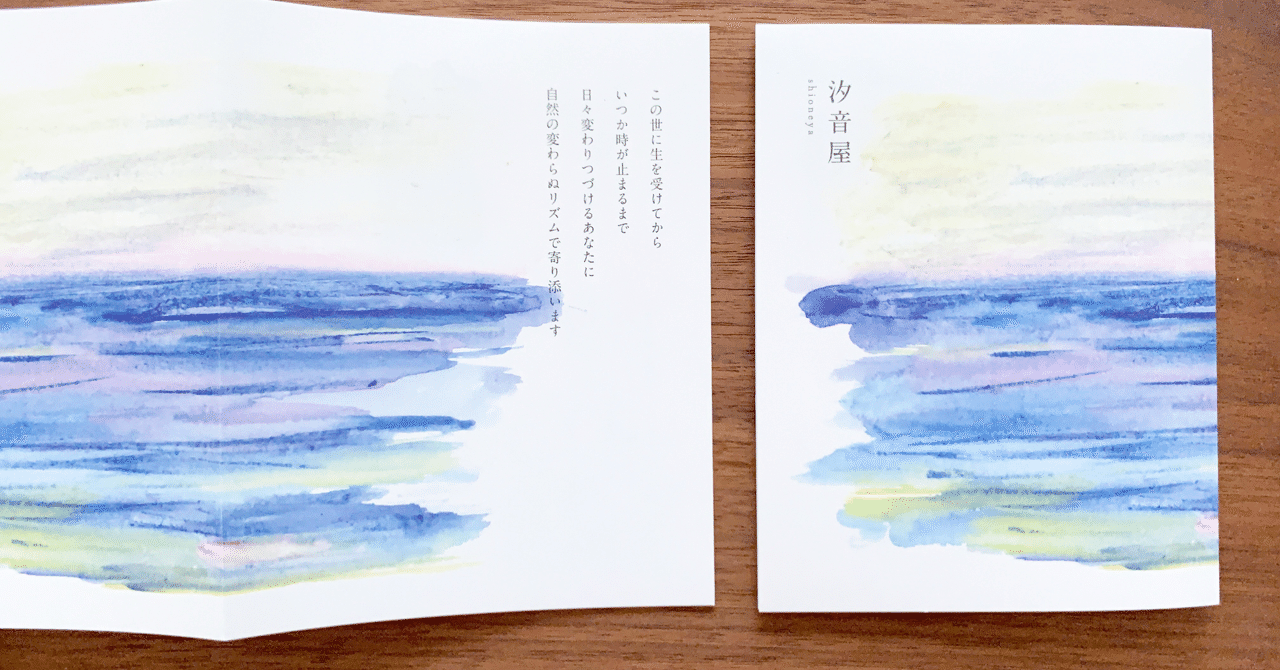 この世に生を受けてから
いつか時が止まるまで
日々変わりつづけるあなたに
自然の変わらぬリズムで寄り添います
汐音屋
shioneya